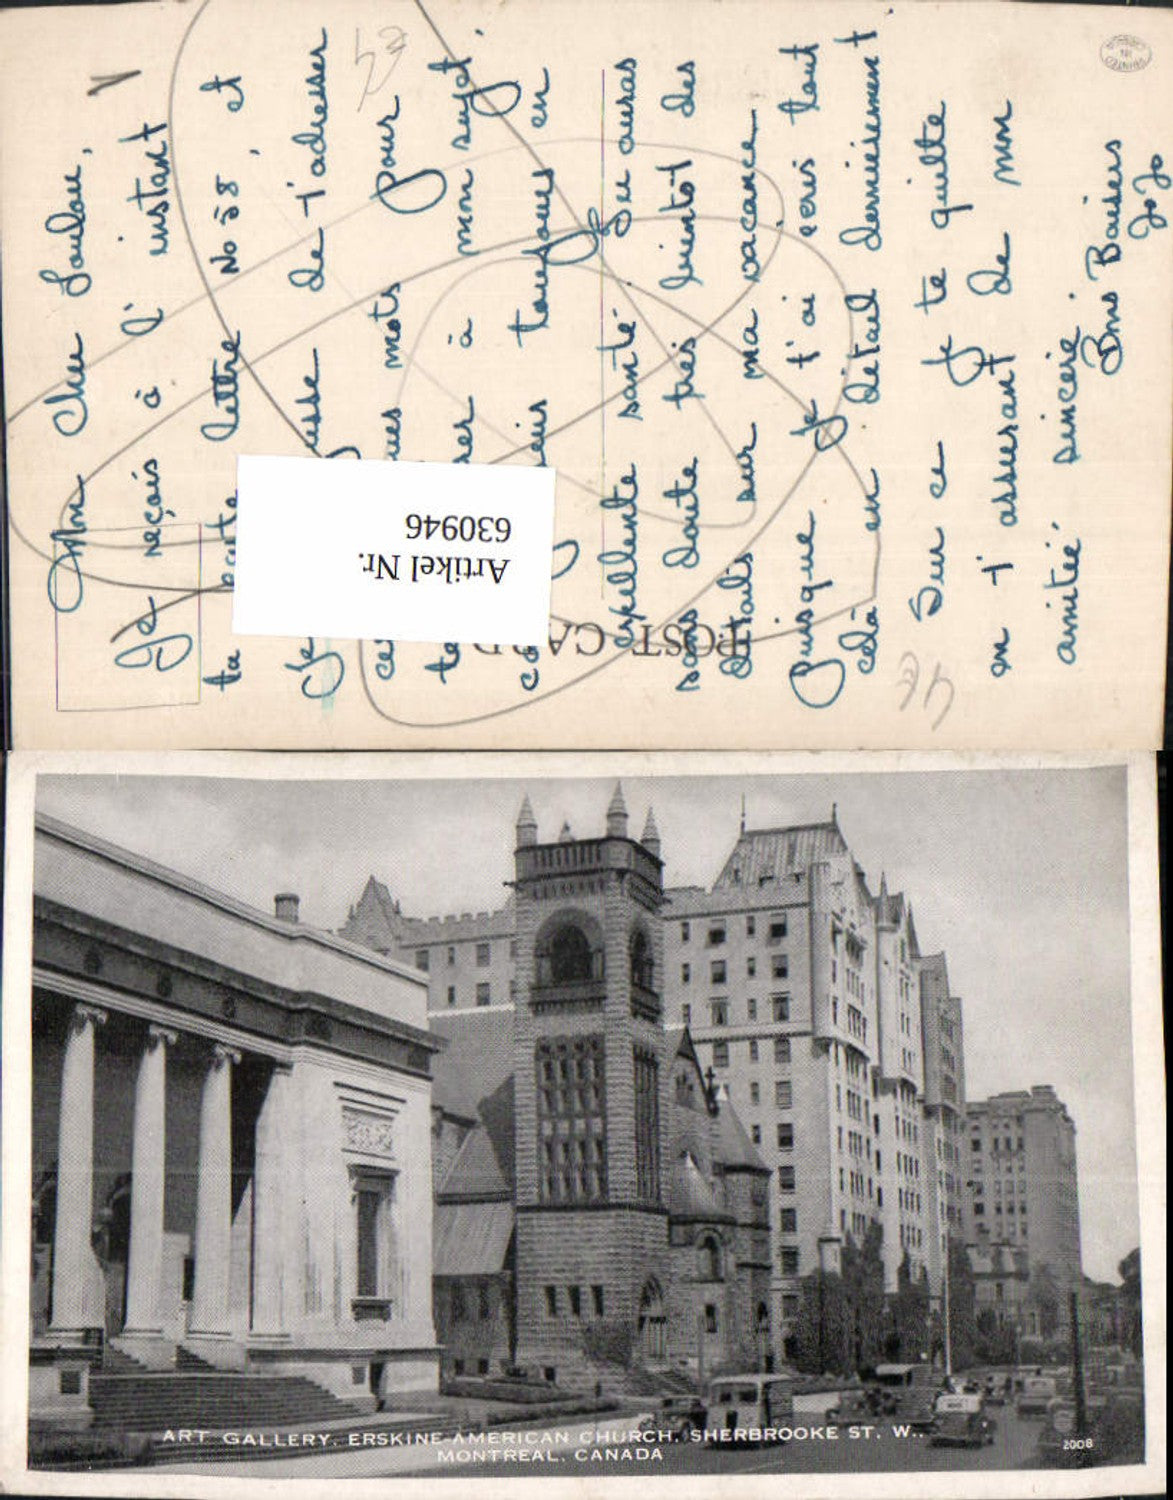 Mon cher Loulou,
Je reçois à l'instant
ta carte lettre No 58, et
Je usse de t'adresser
ce ues mots pour
te er à mon sujet.
co toujours en
excellente santé. Tu auras
sans doute très bientôt des
détails sur ma vacance
puisque je t'ai écris tout
celà en détail dernièrement
Sur ce je te quitte
en t'assurant de mon
amitié sincère.
Bons Baisers
JoJo
Artikel Nr.
630946
POST CARD
PRINTED IN CANADA
ART GALLERY, ERSKINE-AMERICAN CHURCH, SHERBROOKE ST. W.,
MONTREAL, CANADA
2008